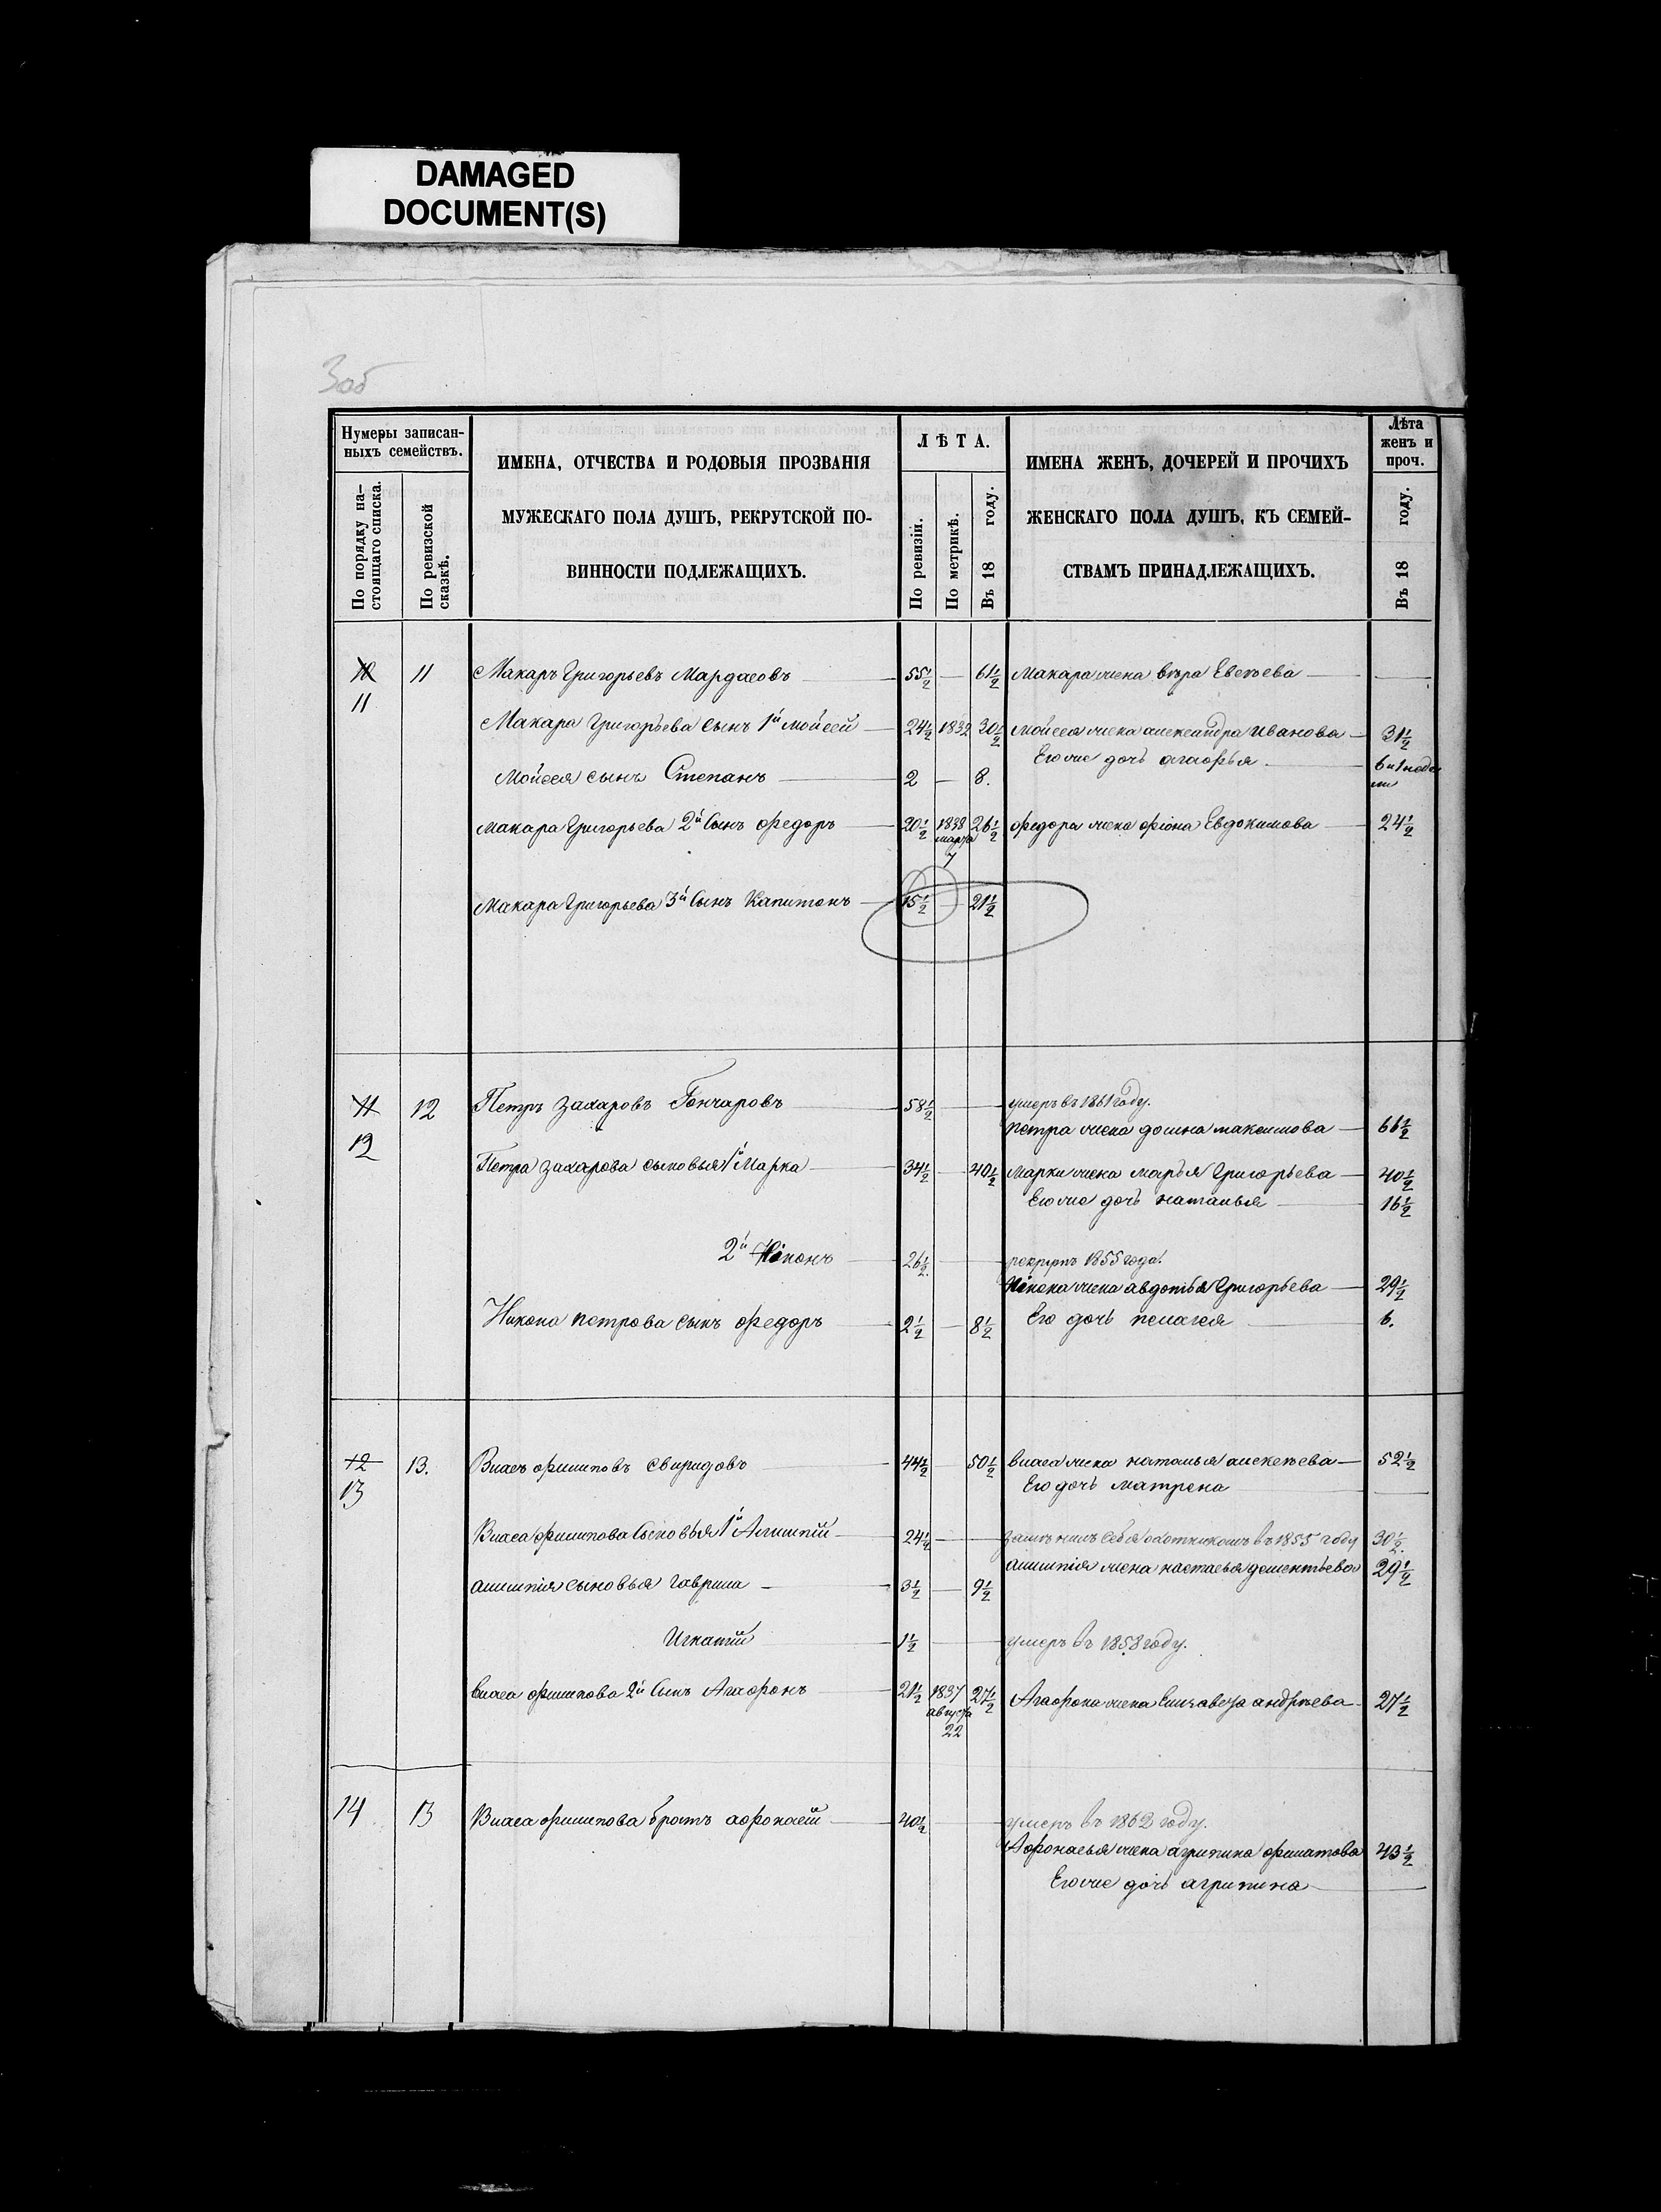 DAMAGED
DOCUMENT(S)
3об
Нумеры записан-
ныхъ семействъ.
По порядку на-
стоящаго списка.
По ревизской
сказкѣ.
ИМЕНА, ОТЧЕСТВА И РОДОВЫЯ ПРОЗВАНІЯ
МУЖЕСКАГО ПОЛА ДУШЪ, РЕКРУТСКОЙ ПО-
ВИННОСТИ ПОДЛЕЖАЩИХЪ.
ЛѢТА.
По ревизіи.
По метрикѣ.
Въ 18 году.
ИМЕНА ЖЕНЪ, ДОЧЕРЕЙ И ПРОЧИХЪ
ЖЕНСКАГО ПОЛА ДУШЪ, КЪ СЕМЕЙ-
СТВАМЪ ПРИНАДЛЕЖАЩИХЪ.
Лѣта
женъ и
проч.
Въ 18 году.
10 11 Макаръ Григорьевъ Мардасовъ 55½ — 61½ Макара жена вѣра Евсѣева —
11
Макара Григорьева сынъ 1й мойсей 24½ 1832 30½ Мойсея жена александра Иванова 31½
Его же дочь агафья 6 и 1 неде
Мойсея сынъ Степанъ 2 — 8.
Макара Григорьева 2й сынъ федоръ 20½ 1838 26½ федора жена фіона Евдокимова 24½
марта
7
Макара Григорьева 3й сынъ Капитонъ 15½ — 21½
11 12 Петръ захаровъ Гончаровъ 58½ — умеръ въ 1861 году.
12
петра жена домна максимова 66½
Петра захарова сыновья 1й Марка 34½ — 40½ Марки жена марья Григорьева 40½
Его же дочь наталья 16½
2йНіконъ 26½ — рекрутъ 1855 года.
Нікона жена авдотья Григорьева 29½
Никона петрова сынъ федоръ 2½ — 8½ Его дочь пелагея 6.
12 13. Власъ филиповъ свиридовъ 44½ — 50½ власа жена наталья алексѣева 52½
13
Его дочь матрена —
Власа филипова сыновья 1й Алимпій 24½ — — себя охотникомъ въ 1855 году 30½.
алимпія жена настасья дементьева 29½
алимпія сыновья гаврила — 3½ — 9½
Игнатій 1½ — умеръ въ 1858 году.
власа филипова 2й сынъ Агафонъ 21½ 1837 27½ Агафона жена Елизавета андрѣева 27½
августа
22
14 13 Власа филипова братъ афонасій 40½ умеръ въ 1862 году.
Афонасья жена агрипина филатова 43½
Его же дочь агрипина —